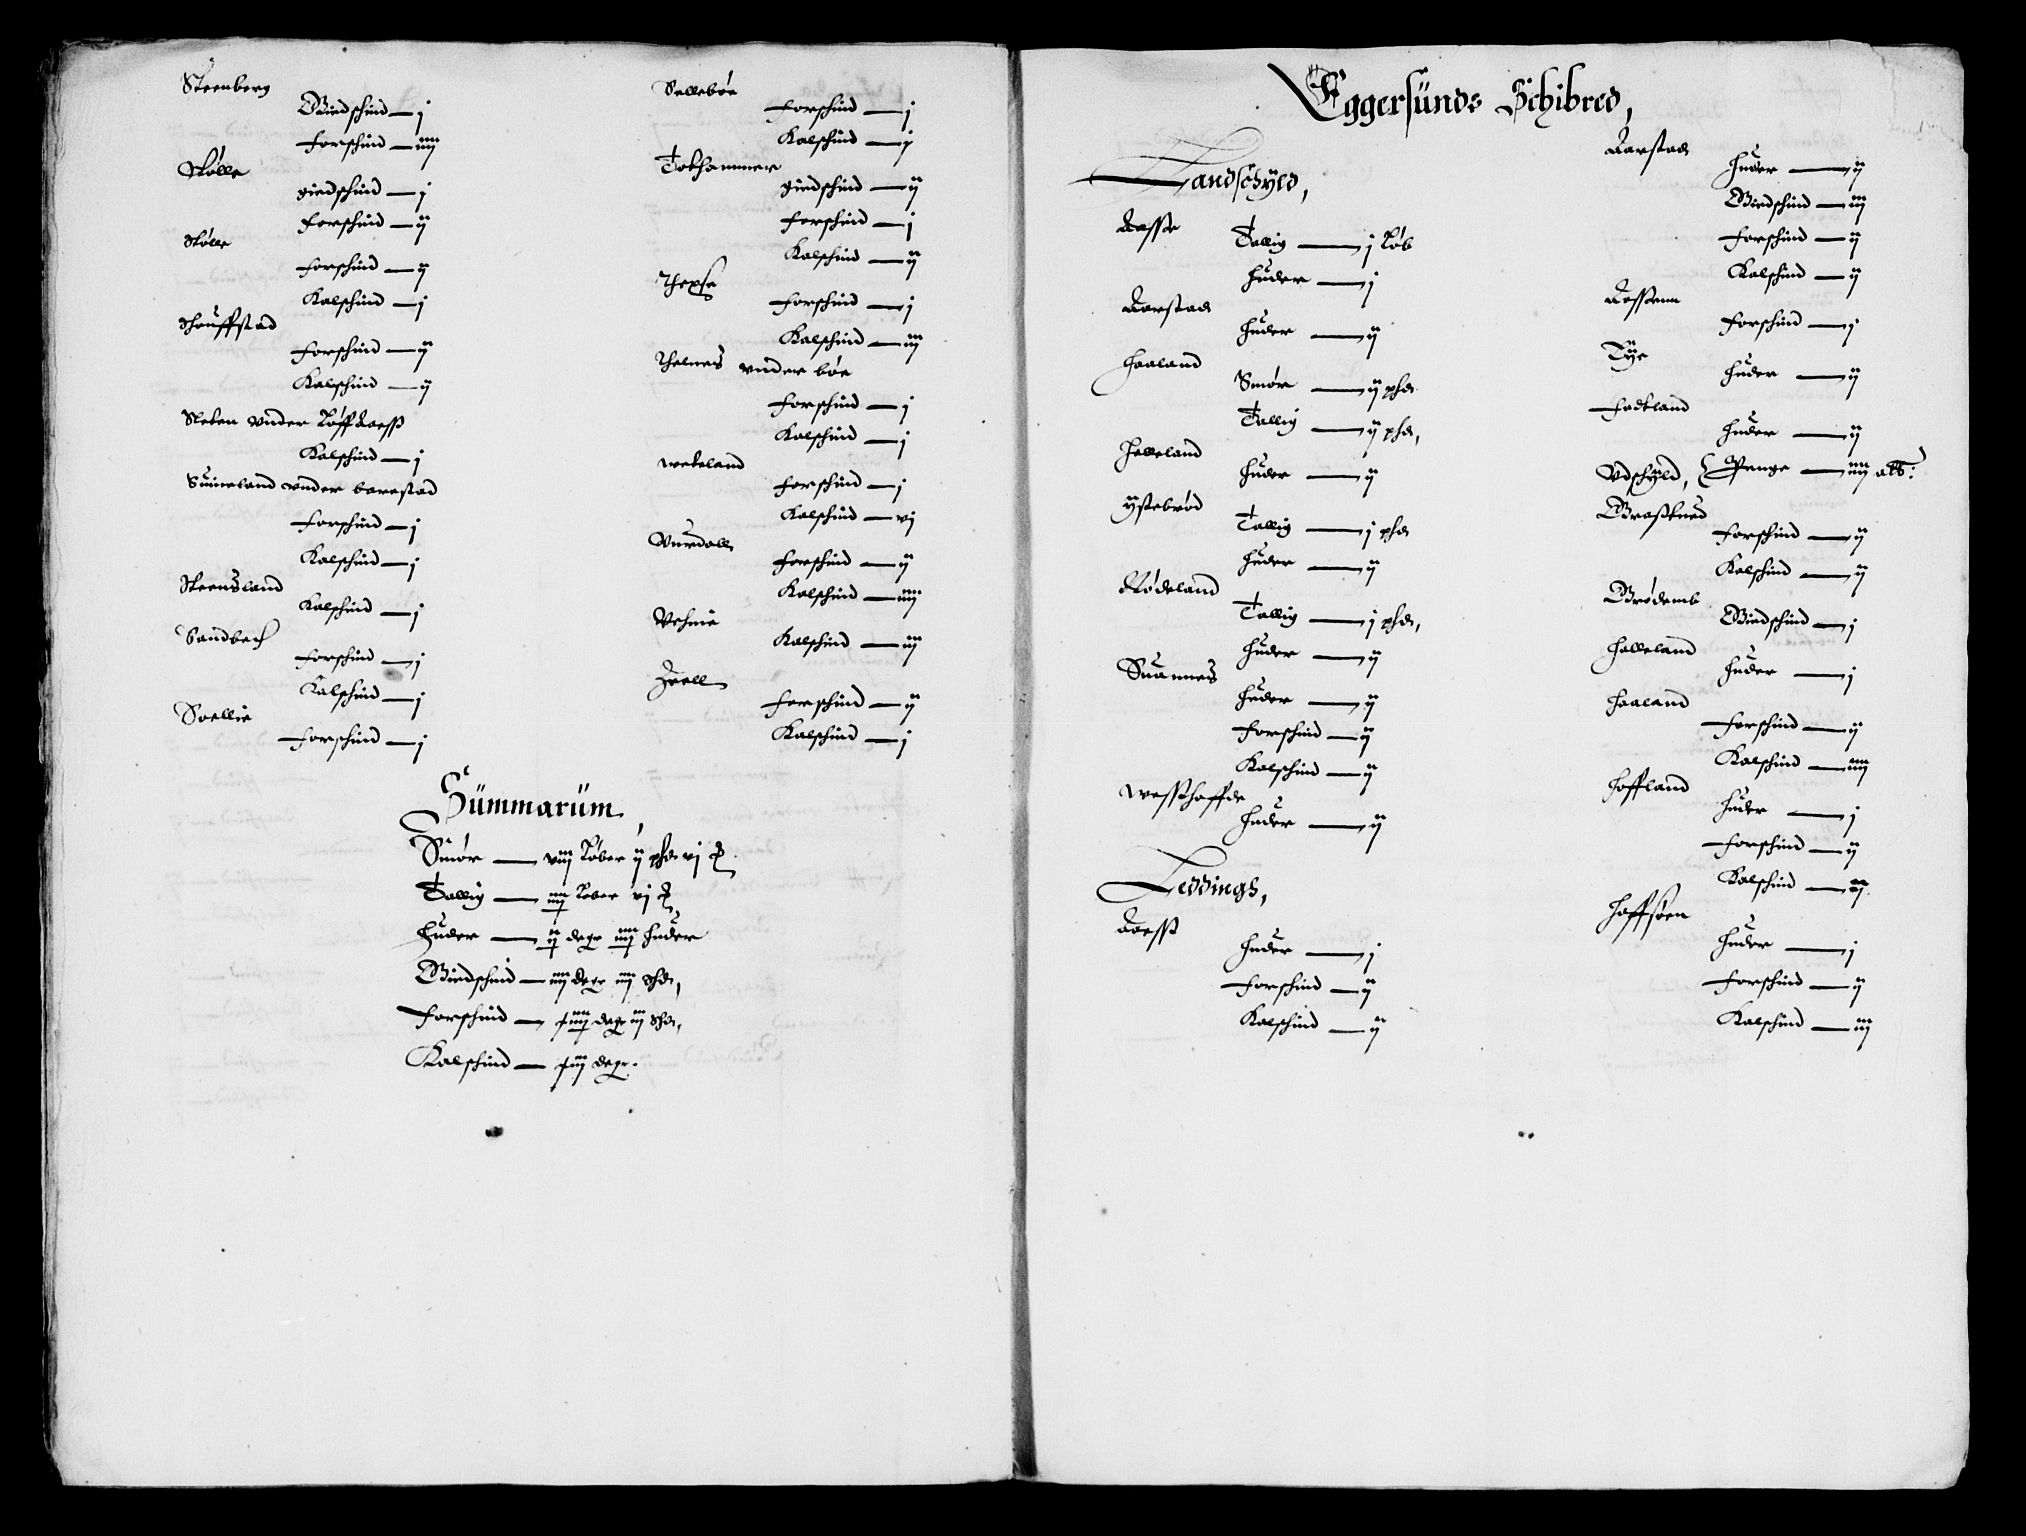 Steenberg
Giedschind — j
Forschind — iiij
Stølle
giedschind — j
Forschind — ij
Stølle
Forschind — ij
Kalschind — j
Schouffstad
Forschind — ij
Kalschind — ij
vnder
Kalschind — j
Suineland vnder barestad
Forschind — j
Kalschind — j
Steensland
Kalschind — j
Sandbech
Forschind — j
Kalschind — j
Soellie
Forschind — j
Sellebøe
Forschind — j
Kalschind — j
Tothammer
giedschind — ij
Forschind — j
Kalschind — ij
Thexse
Forschind — j
Kalschind — iij
Thelnes vnder bøe
Forschind — j
Kalschind — j
weteland
Forschind — j
Kalschind — vj
Vurdall
Forschind — ij
Kalschind — iiij
Kalschind — iij
Forschind — ij
Kalschind — j
Summarum,
Smør — viij løber ij phd vj
Tallig — løber vj
Huder — degr huder
Giedschind — iiij degr iij schd,
Forschind — degr iij schd,
Kalschind — degr.
Eggersunds Schibred,
Landschyld,
Aasse
Tallig — j løb
Huder — j
Aarstad
Huder — ij
Haaland
Smør — ij phd
Tallig — ij phd,
Helleland
Huder — ij
ystebrød
Tallig — j phd
Huder — ij
Rødeland
Tallig — j phd,
Huder — ij
Suannes
Huder — ij
Forschind — ij
Kalschind — ij
Huder — ij
Leddings,
Aaess
Huder — j
Forschind — ij
Kalschind — ij
Aarstad
Huder — ij
Giedschind — iij
Forschind — ij
Kalschind — ij
Aassenn
Forschind — j
Tye
Huder — ij
Fodtland
Huder — ij
Vdschyld, Penge — iiij alb:
Forschind — ij
Kalschind — ij
Giedschind — j
Helleland
Huder — j
Haaland
Forschind — ij
Kalschind — iiij
Hoffland
Huder — j
Forschind — ij
Kalschind — ij
Haffsøen
Huder — j
Forschind — ij
Kalschind — iij